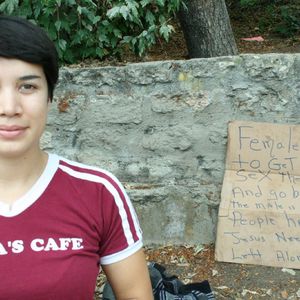 A'S CAFE
Female
to GeT
Sex The
And go b
the male is
People ha
Jesus Ne
Left Alon